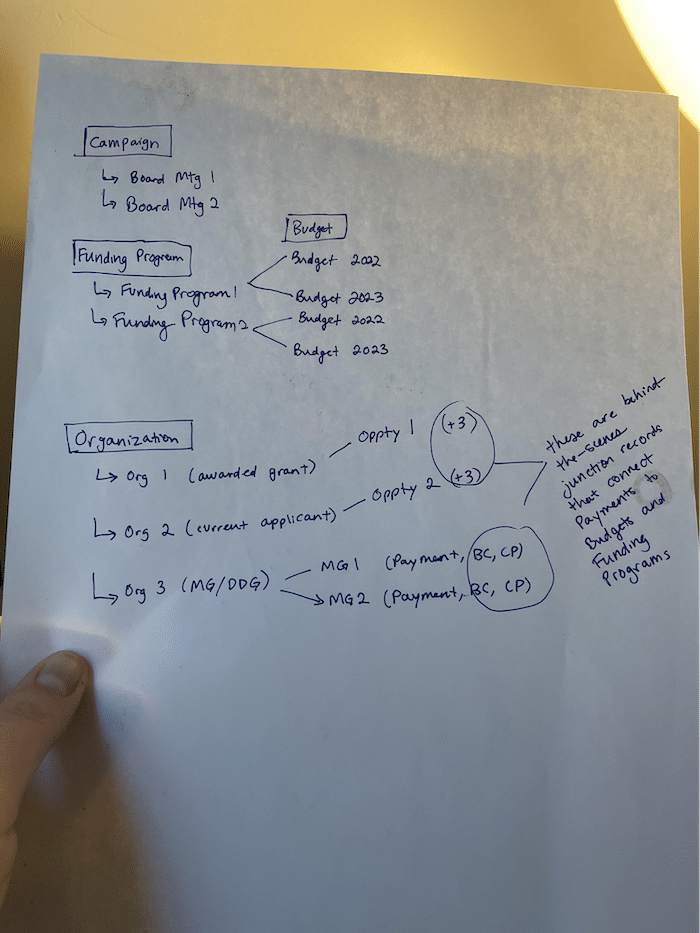 Campaign
↳ Board Mtg 1
↳ Board Mtg 2
Budget
Funding Program
↳ Funding Program 1
Budget 2022
Budget 2023
↳ Funding Program 2
Budget 2022
Budget 2023
Organization
↳ Org 1 (awarded grant) Oppty 1 (+3)
↳ Org 2 (current applicant) Oppty 2 (+3)
↳ Org 3 (MG/DDG)
MG1 (Payment, BC, CP)
MG2 (Payment, BC, CP)
these are behind
the-scenes
junction records
that connect
Payments to
Budgets and
Funding
Programs